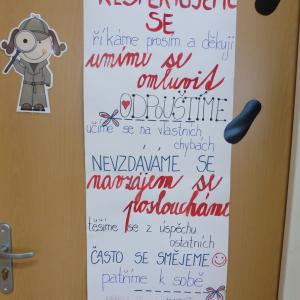 RESPEKTUJEME
SE
říkáme prosím a děkuji
umíme se
omluvit
ODPUŠTÍME
učíme se na vlastních
chybách
NEVZDÁVÁME SE
navzájem se
posloucháme
těšíme se z úspěchu
ostatních
ČASTO SE SMĚJEME
patříme k sobě